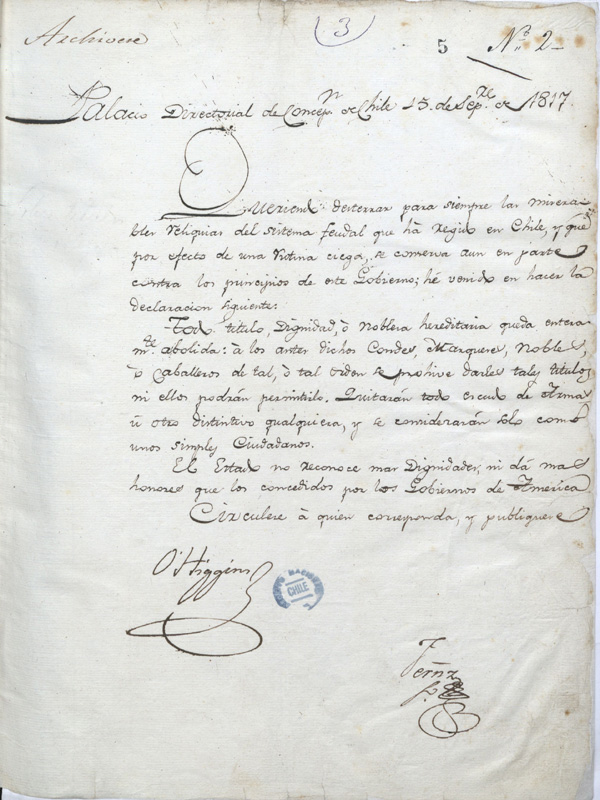 Archivese
3
5
N.º 2
Palacio Directorial de Concep.n de Chile 15. de Sep.re de 1817.
Queriendo desterrar para siempre las misera-
bles reliquias del sistema feudal que há regido en Chile, y que
por efecto de una rutina ciega, se conserva aun en parte
contra los principios de este Gobierno; hé venido en hacer la
declaracion siguiente:
Todo titulo, Dignidad, ò Nobleza hereditaria queda entera-
m.te abolida: à los antes dichos Condes, Marqueses, Nobles,
ò Caballeros de tal, ò tal orden se prohive darles tales titulos,
ni ellos podrán permitirlo. Quitarán todo escudo de Armas
ù otro distintivo qualquiera, y se considerarán solo como
unos simples Ciudadanos.
El Estado no reconoce mas Dignidades, ni dá mas
honores que los concedidos por los Gobiernos de America
Circulese à quien corresponda, y publiquese
O'Higgins
CHILE